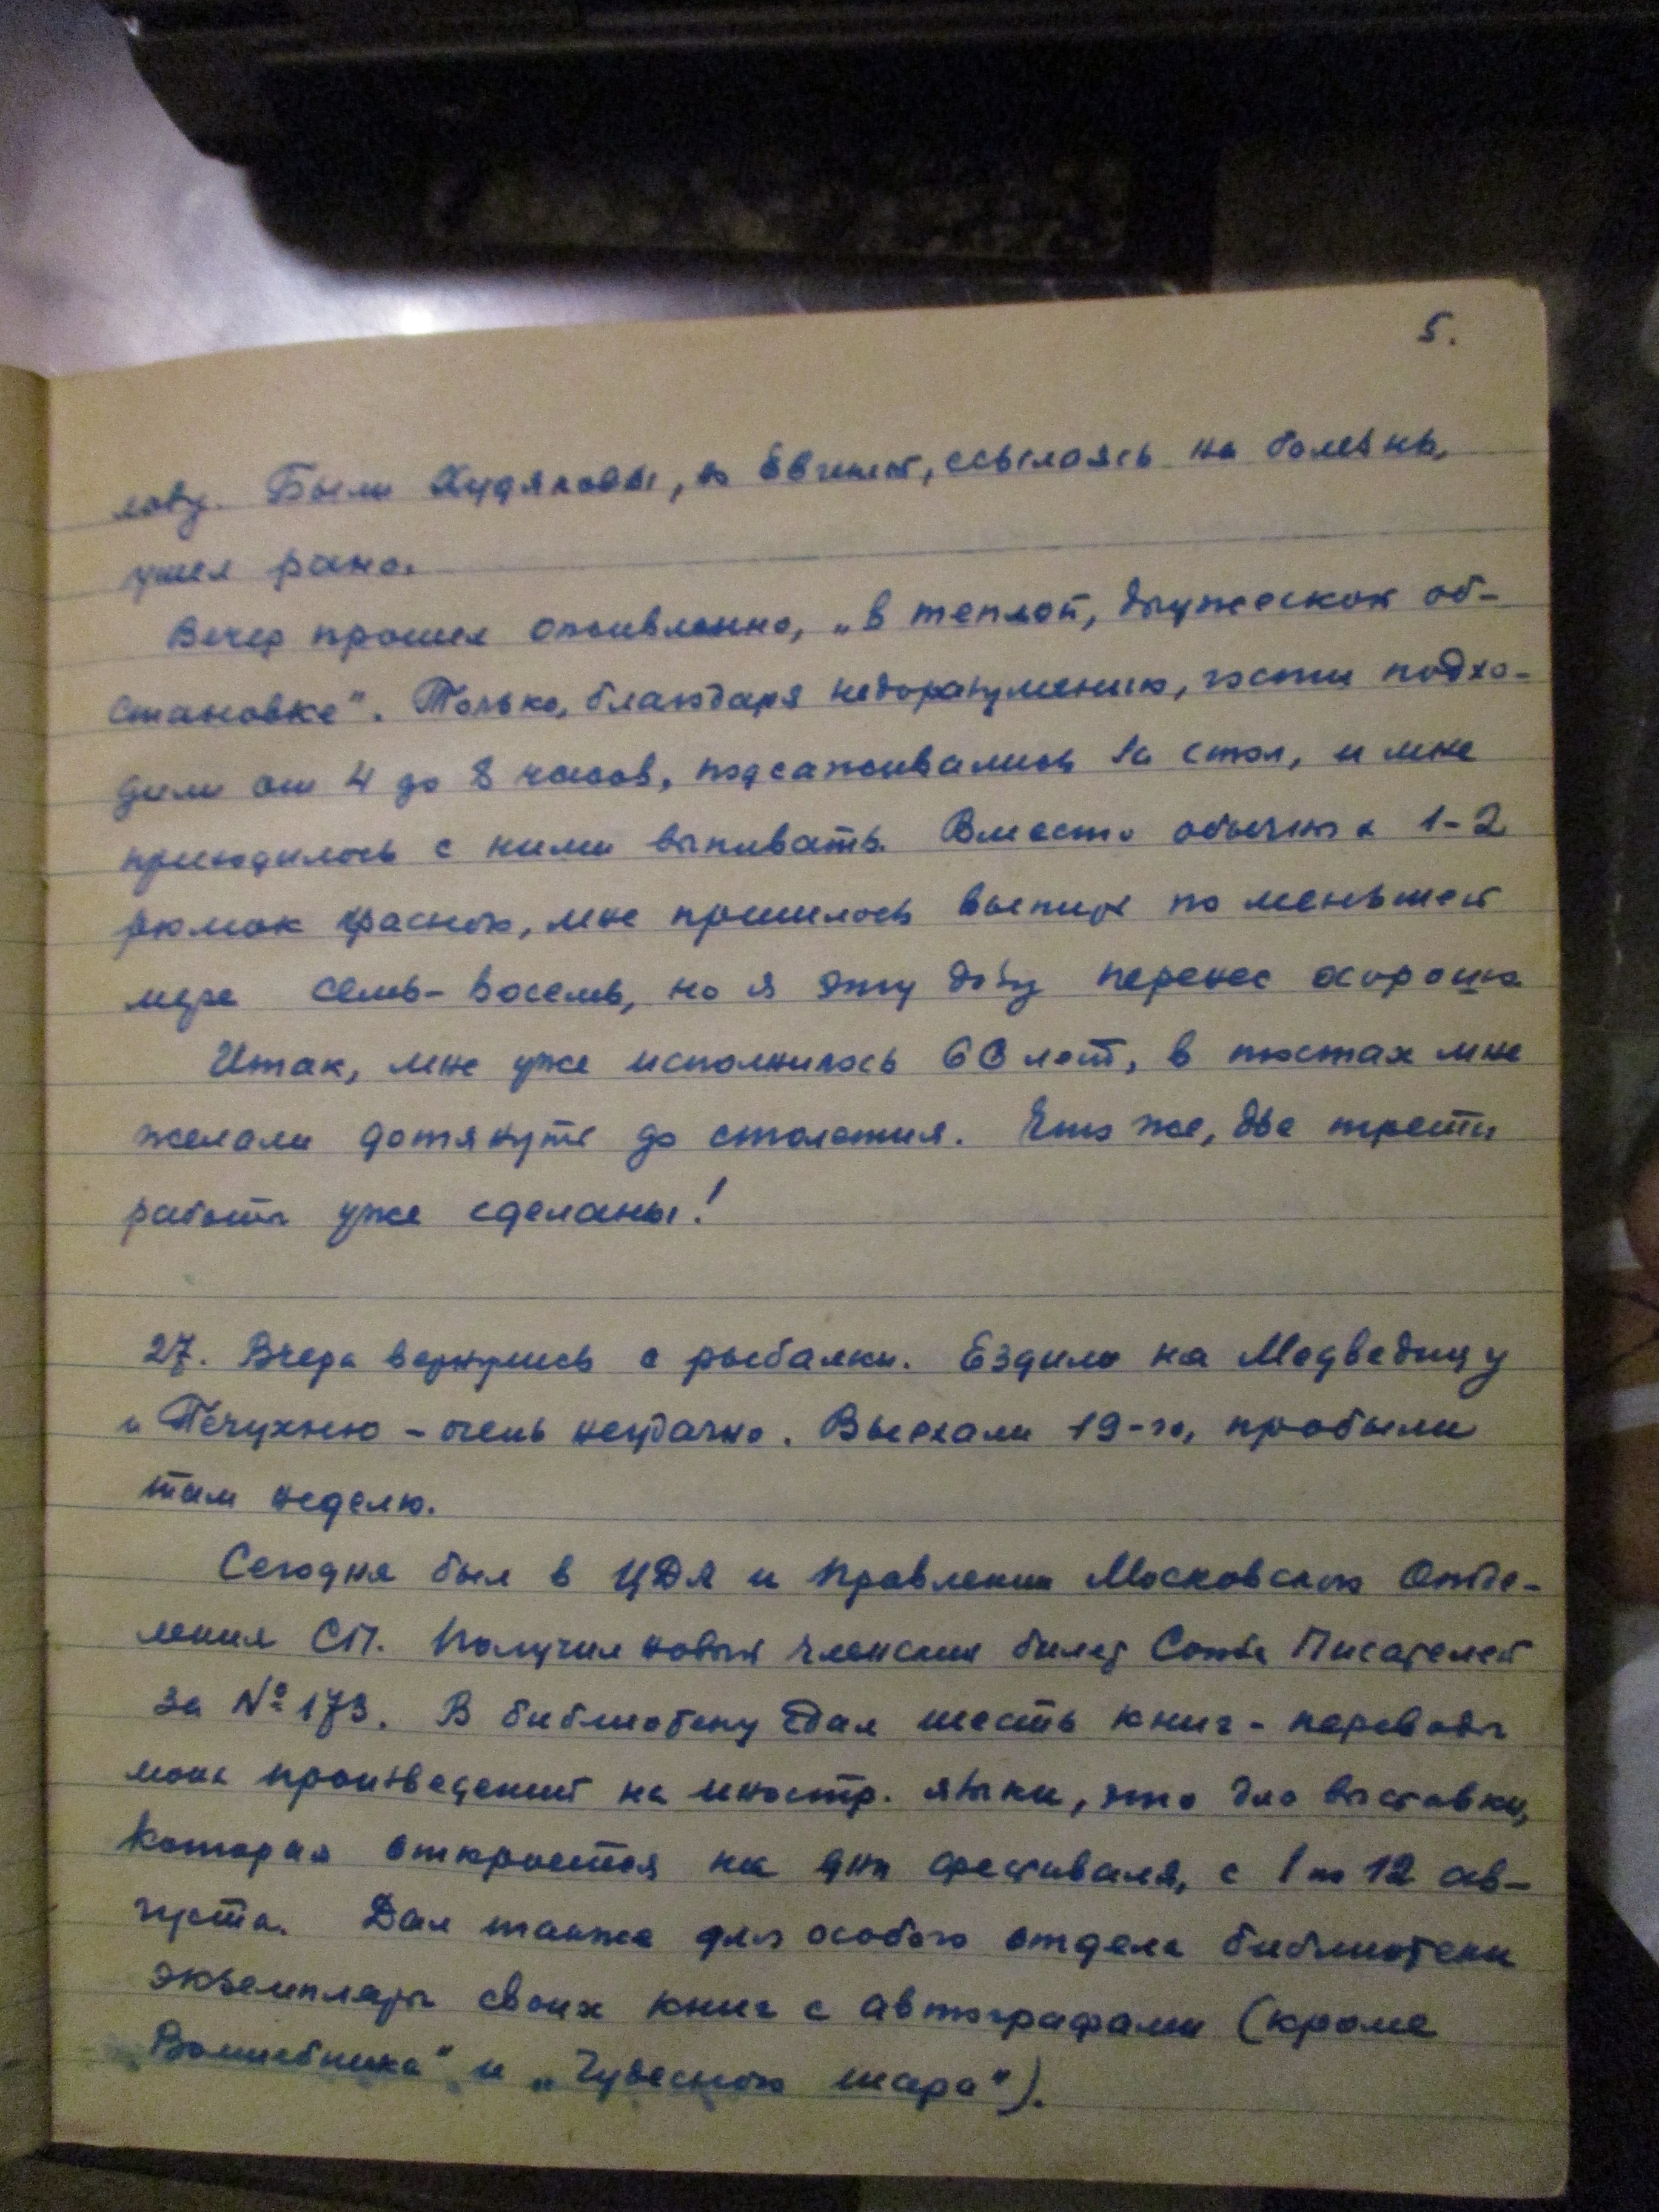 5.
лову. Были Худяковы, но Евгений, ссылаясь на болезнь,
ушел рано.
Вечер прошел оживленно, „в теплой, дружеской об-
становке“. Только, благодаря недоразумению, гости подхо-
дили от 4 до 8 часов, подсаживались за стол, и мне
приходилось с ними выпивать. Вместо обычных 1-2
рюмок красного, мне пришлось выпить по меньшей
мере семь-восемь, но я эту дозу перенес хорошо.
Итак, мне уже исполнилось 66 лет, в тостах мне
желали дотянуть до столетия. Что же, две трети
работы уже сделаны!
27. Вчера вернулись с рыбалки. Ездили на Медведицу
и – очень неудачно. Выехали 19-го, пробыли
там неделю.
Сегодня был в ЦДЛ и Правлении Московского Отде-
ления СП. Получил новый членский билет Союза Писателей
за № 173. В библиотеку сдал шесть книг - переводы
моих произведений на иностр. языки, это для выставки,
которая откроется на дни фестиваля, с 1 по 12 ав-
густа. Дал также для особого отдела библиотеки
экземпляры своих книг с автографами (кроме
Волшебника“ и „Чудесного шара“).